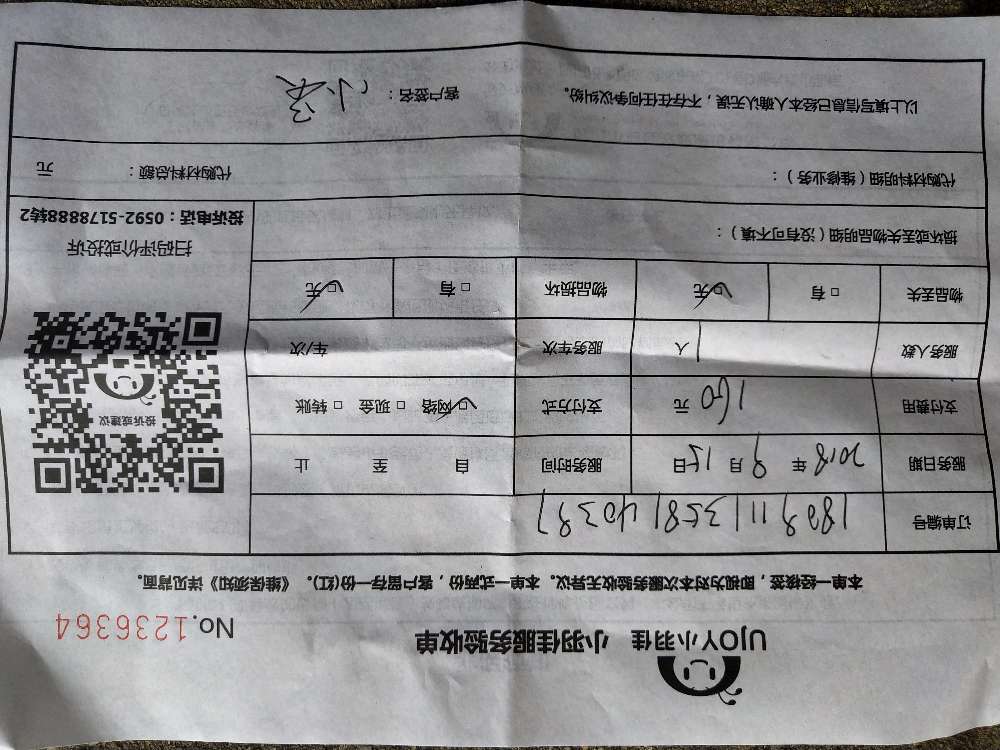 UJOY小羽佳 小羽佳服务验收单
No.1236364
本单一经核签，即视为对本次服务验收无异议。本单一式两份，客户留存一份(红)。《维保须知》详见背面。
订单编号
服务日期 2018 年 9 月 15 日 服务时间 自 至 止
支付费用 160 元 支付方式 ☑网络 □ 现金 □ 转账
服务人数 1 人 服务车次 车/次
物品丢失 □ 有 ☑无 物品损坏 □ 有 ☑无
损坏或丢失物品明细（没有可不填）：
代购材料明细（维修业务）： 代购材料总额： 元
以上填写信息已经本人确认无误，不存在任何争议纠纷。 客户签名：
投诉或建议
扫码评价或投诉
投诉电话：0592-5178888转2